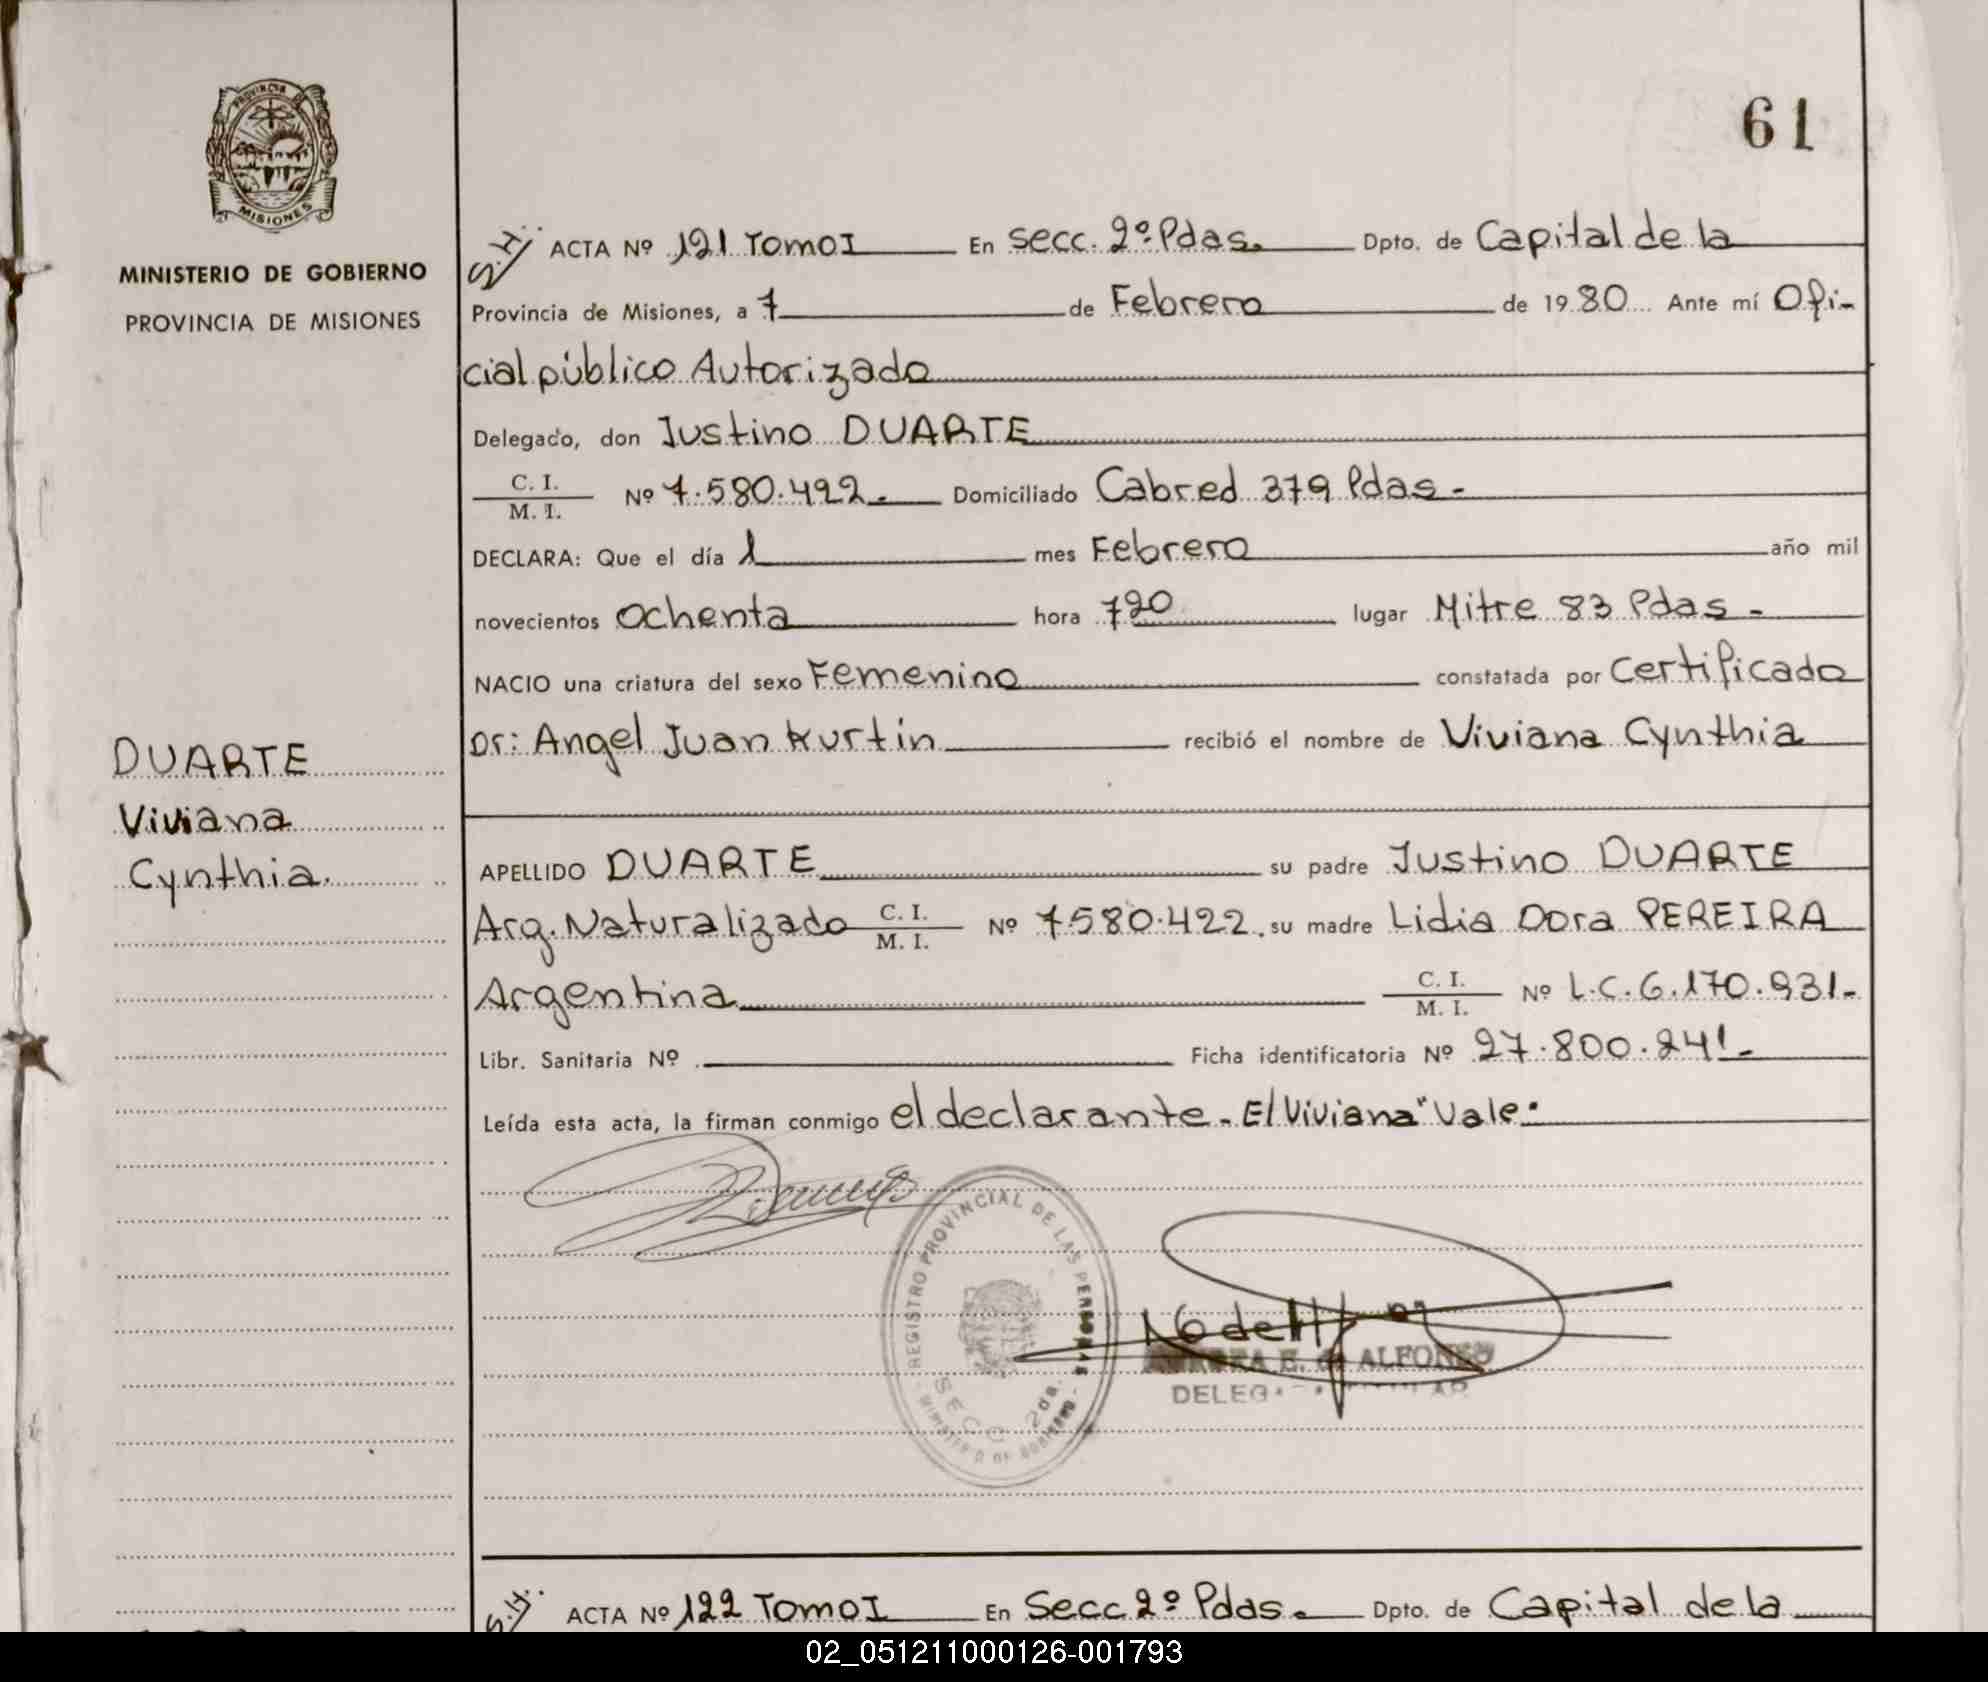 PROVINCIA DE
MISIONES
MINISTERIO DE GOBIERNO
PROVINCIA DE MISIONES
61
S.H. ACTA Nº 121 Tomo I En secc. 2º Pdas. Dpto. de Capital de la
Provincia de Misiones, a 7 de Febrero de 1980 Ante mí Ofi-
cial público Autorizado
Delegado, don Justino DUARTE
C. I.
M. I. Nº 7.580.422. Domiciliado Cabred 379 Pdas-
DECLARA: Que el día 1 mes Febrero año mil
novecientos Ochenta hora 720 lugar Mitre 83 Pdas-
NACIO una criatura del sexo Femenino constatada por Certificado
Dr: Angel Juan Kurtin recibió el nombre de Viviana Cynthia
DUARTE
Viviana
Cynthia.
APELLIDO DUARTE su padre Justino DUARTE
Arg. Naturalizado C. I. M. I. Nº 7.580.422. su madre Lidia Dora PEREIRA
Argentina C. I. M. I. Nº L.C.6.170.931-
Libr. Sanitaria Nº Ficha identificatoria Nº 27.800.241-
Leída esta acta, la firman conmigo el declarante- El Viviana" Vale:
REGISTRO PROVINCIAL DE LAS PERSONAS
SECC. 2da.
MINISTERIO DE GOBIERNO
E. de ALFONSO
ACTA Nº 122 Tomo I En Secc 2º Pdas. Dpto. de Capital de la
02_051211000126-001793